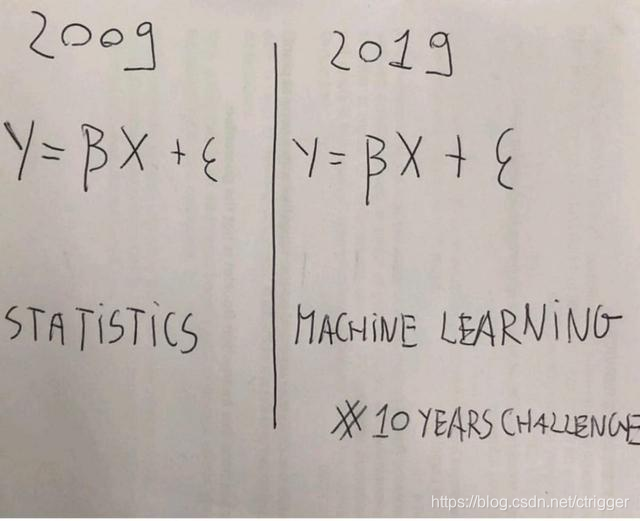 2009
Y = βX + ε
STATISTICS
2019
Y = βX + ε
MACHINE LEARNING
#10 YEARS CHALLENGE
https://blog.csdn.net/ctrigger